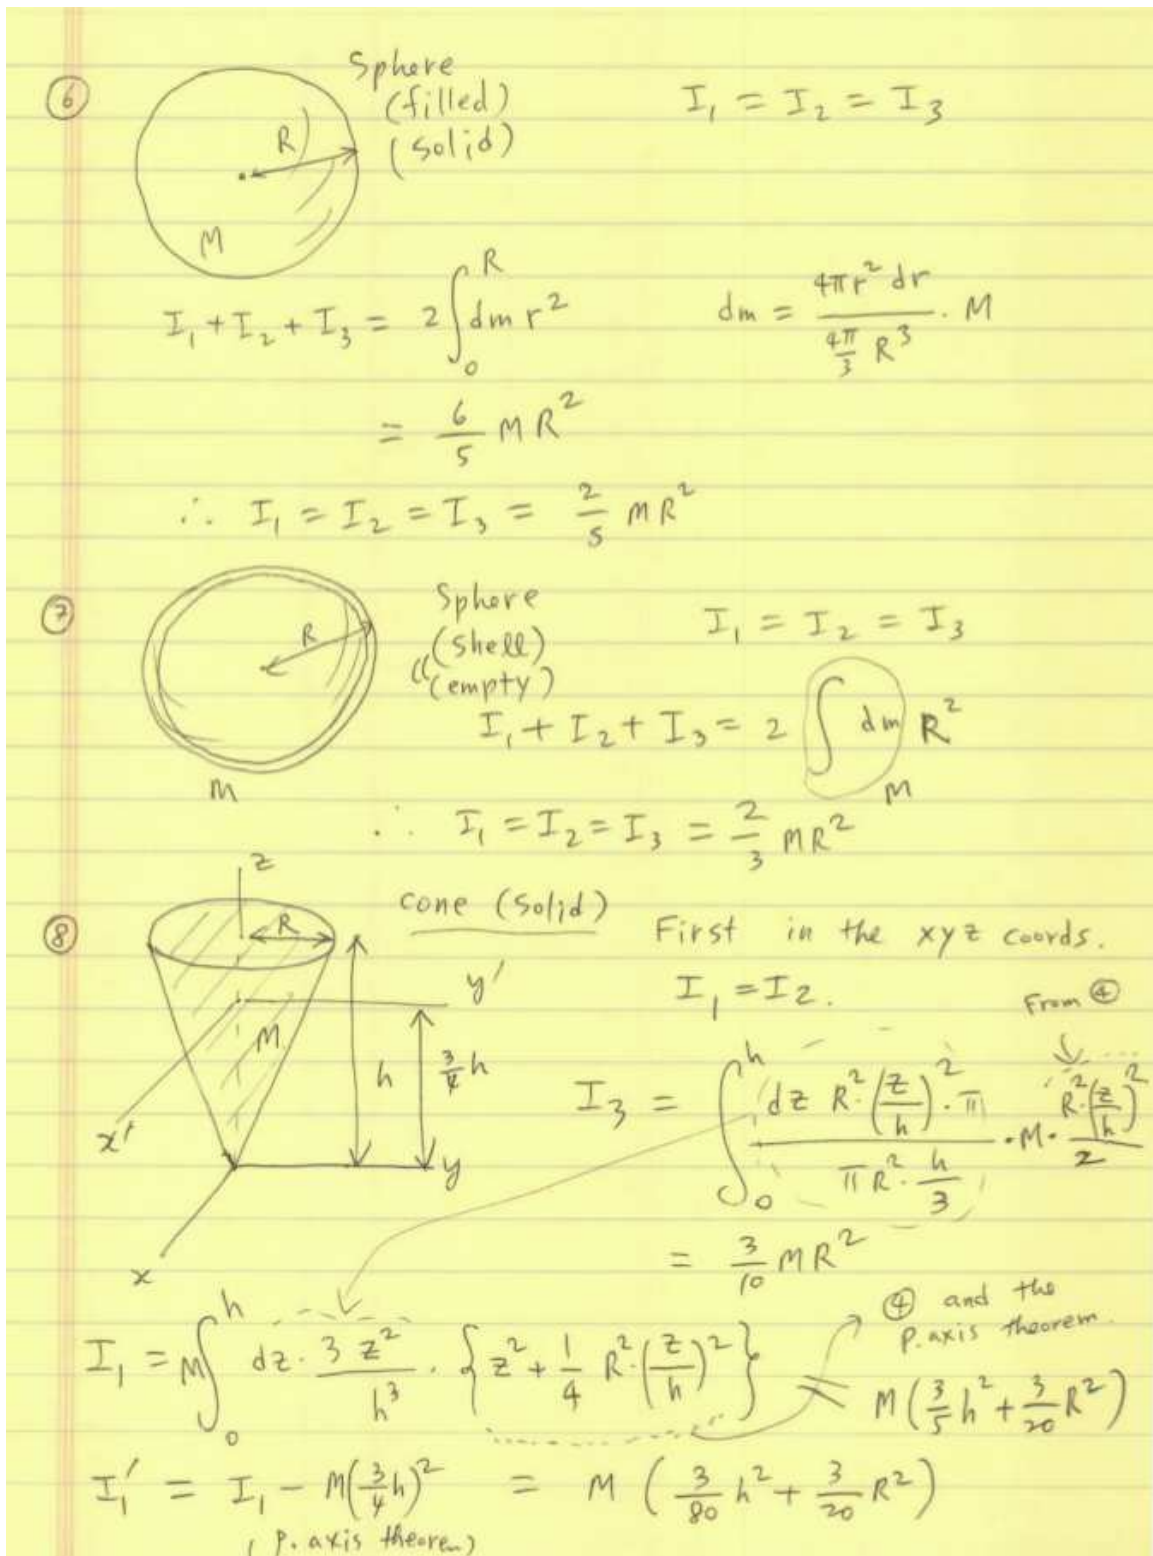 ⑥
Sphere
(filled)
(solid)
I₁ = I₂ = I₃
R
M
I₁ + I₂ + I₃ = 2 ∫₀ᴿ dm r²
dm = 4πr² dr / (4π/3 R³) · M
= 6/5 MR²
∴ I₁ = I₂ = I₃ = 2/5 MR²
⑦
Sphere
(shell)
(empty)
I₁ = I₂ = I₃
R
M
I₁ + I₂ + I₃ = 2 ∫ dm R²
M
∴ I₁ = I₂ = I₃ = 2/3 MR²
⑧
z
R
cone (solid)
First in the xyz coords.
y'
I₁ = I₂.
From ④
M
h
3/4 h
x'
y
x
I₃ = ∫₀ʰ (dz R²·(z/h)²·π) / (πR²·h/3) · M · R²(z/h)²/2
= 3/10 MR²
④ and the
p.axis theorem.
I₁ = M ∫₀ʰ dz · 3z²/h³ · {z² + 1/4 R²·(z/h)²} = M(3/5 h² + 3/20 R²)
I₁' = I₁ - M(3/4 h)² = M (3/80 h² + 3/20 R²)
(p. axis theorem)